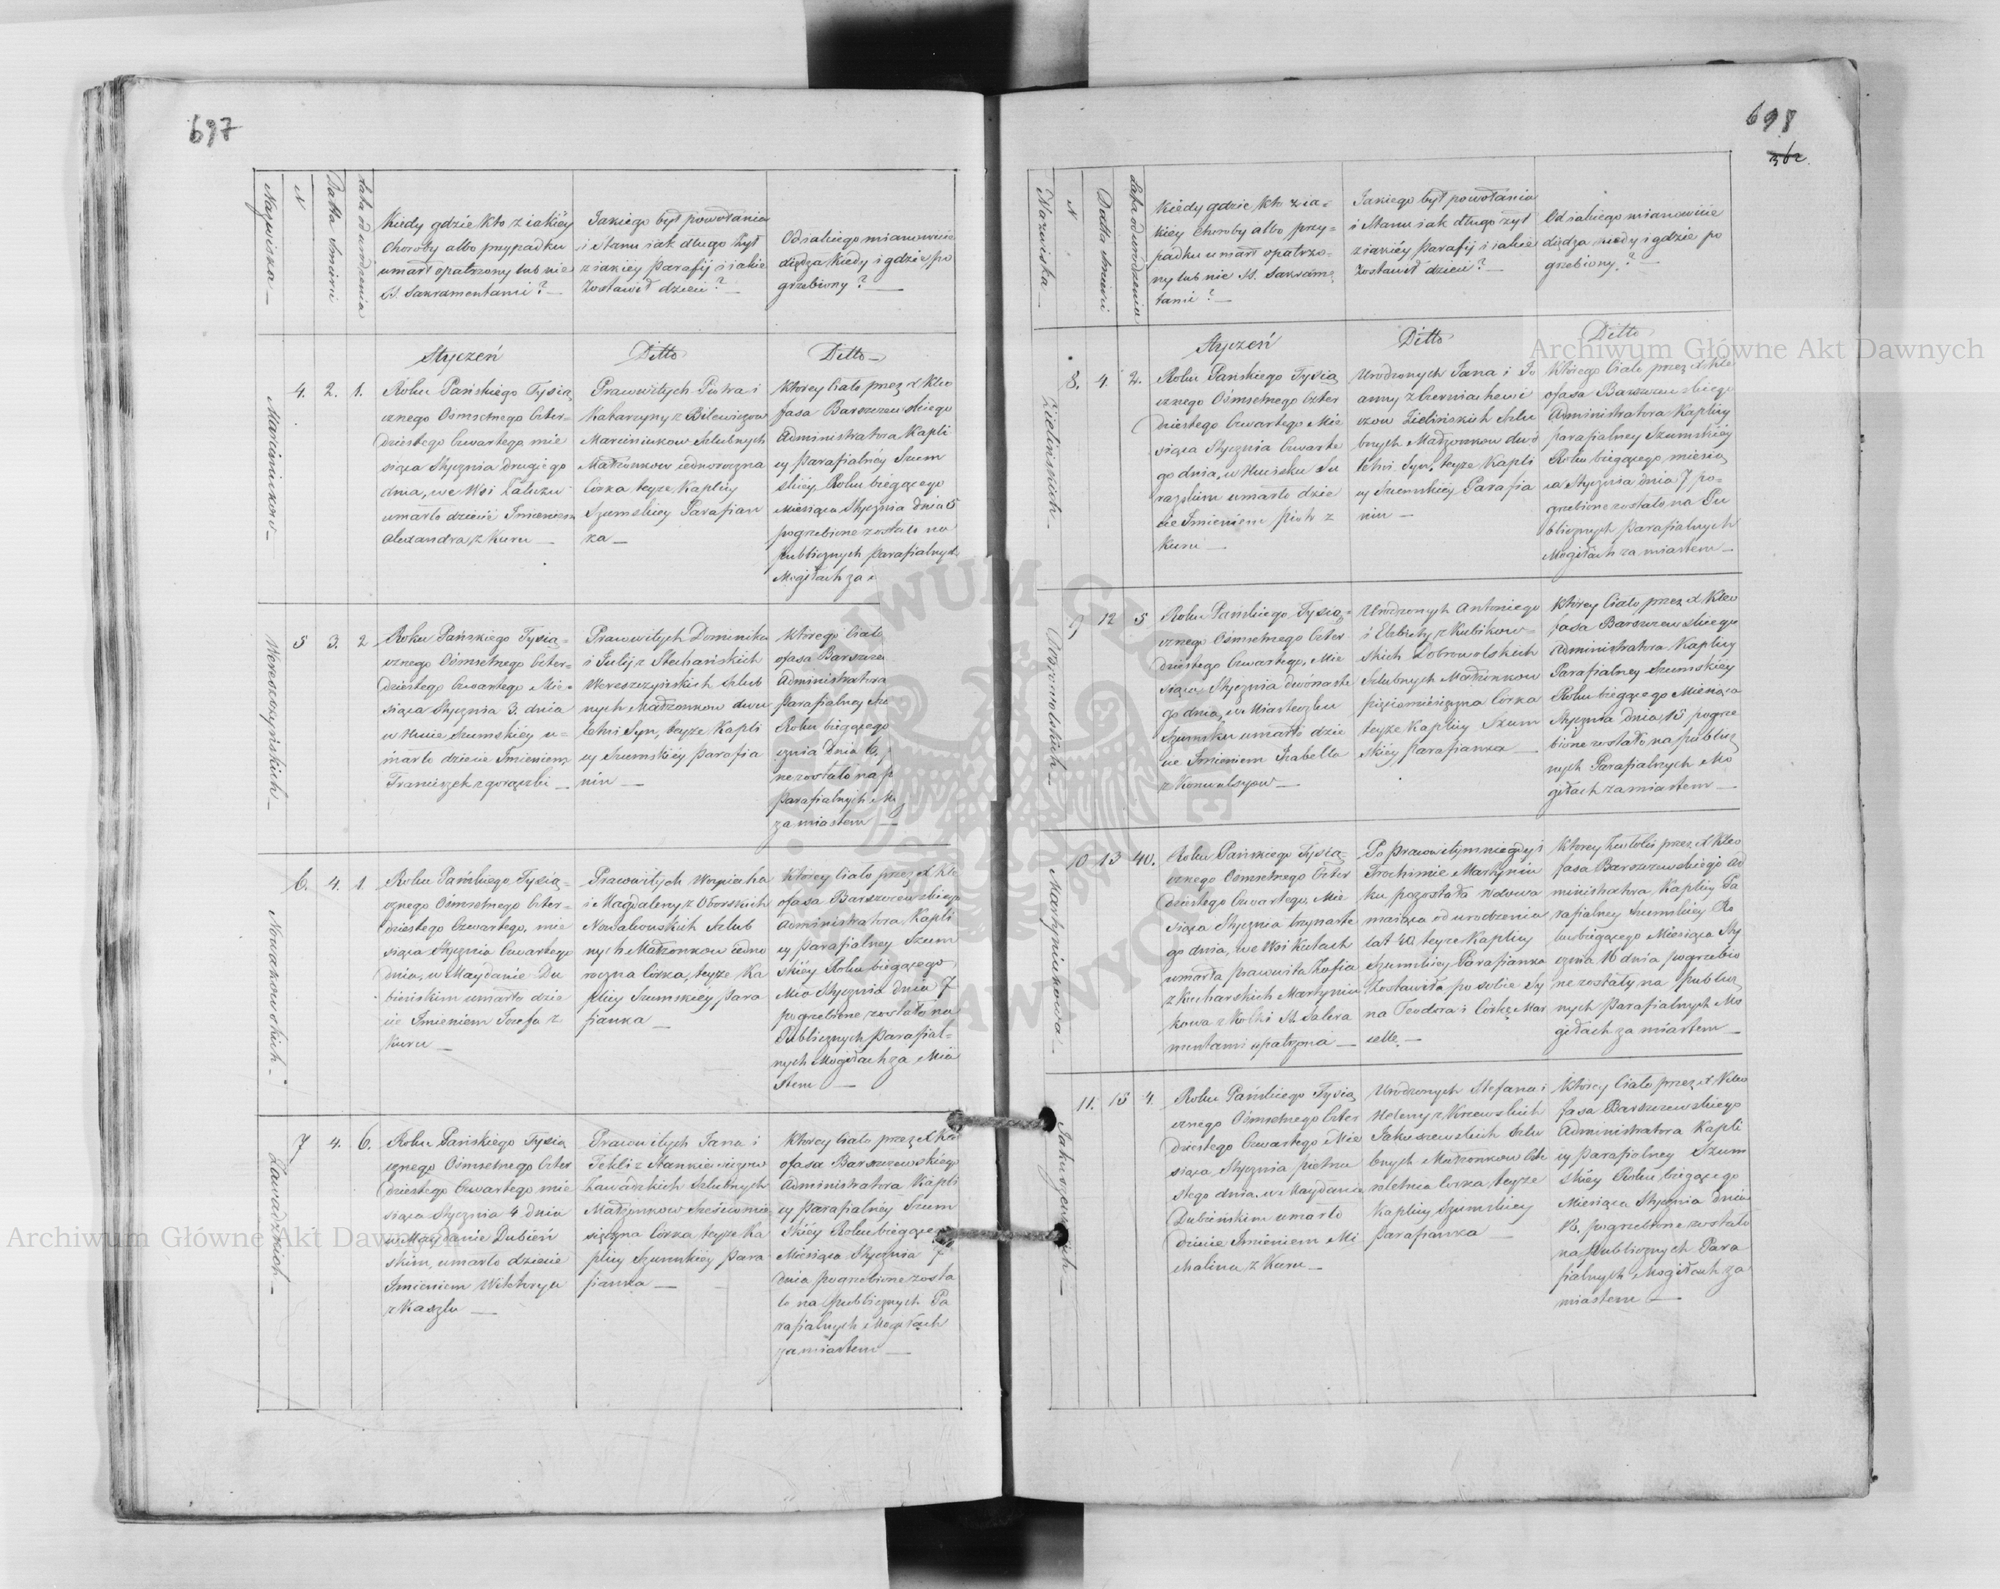 697
Nazwiska
N
Datta śmierci
Lata od urodzenia
Kiedy gdzie kto z iakiéy
choroby albo przypadku
umarł opatrzony lub nie
SS. Sakramentami? —
Jakiego był powołania
i stanu iak długo żył
z iakiéy Parafij i iakie
zostawił dzieci? —
Od iakiego mianowicie
Xiędza kiedy i gdzie po
grzebiony? —
Styczeń
Ditto
Ditto
Marciniuków —
4. 2. 1.
Roku Pańskiego Tysią
cznego Ośmsetnego Czter-
dziestego Czwartego mie
siąca Stycznia drugiego
dnia, we Wsi
umarło dziecie Imieniem
Alexandra, z kuru —
Prawowitych Piotra i
Katarzyny z Bilewiczow
Marciniukow szlubnych
Małżonkow iednoroczna
Córka teyże Kaplicy
Szumskiey Parafian
ka —
Ktorey Ciało przez X Kleo
fasa Barszczewskiego
Administratora Kapli
cy Parafialnéy Szum
skiéy Roku biegącego
Miesiąca Stycznia dnia 5
pogrzebione zostało na
publicznych Parafialnych
Mogiłach za
Wereszczyńskich —
5 3. 2
Roku Pańskiego Tysią-
cznego Ośmsetnego Czter-
dziestego Czwartego Mie-
siąca Stycznia 3. dnia
w Hucie Szumskiéy u-
marło dziecie Imieniem
Franciszek z gorączki —
Prawowitych Dominika
i Julij z Stechańskich
Wereszczyńskich szlub
nych Małżonkow dwu
letni Syn, teyże Kapli
cy Szumskiéy Parafia
nin —
Którego Ciało
ofasa Barszcze
Administratora
Parafialney Szu
Roku biegącego
cznia dnia 6,
ne zostało na p
Parafialnych M
za miastem —
Nowakowskich —
6. 4. 1.
Roku Pańskiego Tysią-
cznego Ośmsetnego Czter-
dziestego Czwartego, mie
siąca Stycznia Czwartego
dnia, w Maydanie Du
bieńskim umarło dzie
cie Imieniem Jozefa z
kuru —
Prawowitych Woyciecha
i Magdaleny z Oborskich
Nowakowskich szlub
nych Małżonkow iedno
roczna Córka, teyże Ka
plicy Szumskiéy Para
fianka —
Ktorey Ciało przez X Kle
ofasa Barszczewskiego
Administratora Kapli
cy Parafialney Szum
skiéy Roku biegącego
Mca Stycznia dnia 7
pogrzebione zostało na
Publicznych Parafial-
nych Mogiłach za Mia
stem —
Zawadzkich —
7 4. 6.
Roku Pańskiego Tysią
cznego Ośmsetnego Czter
dziestego Czwartego mie
siąca Stycznia 4 dnia
w Maydanie Dubień
skim, umarło dziecie
Imieniem Wiktorya
z Kaszlu —
Prawowitych Jana i
Tekli z Stankiewiczow
Zawadzkich szlubnych
Małżonkow sześciomie
sięczna Córka teyże Ka
plicy Szumskiéy Para
fianka —
Ktorey Ciało przez X Kle
ofasa Barszczewskiego
Administratora Kapli
cy Parafialney Szum
skiéy Roku biegącego
Miesiąca Stycznia 7
dnia pogrzebione zosta
ło na publicznych Pa
rafialnych Mogiłach
za miastem —
698
362
Nazwiska —
N
Datta śmierci
Lata od urodzenia
Kiedy gdzie kto z ia-
kiéy choroby albo przy-
padku umarł opatrzo-
ny lub nie SS. Sakramę
tami? —
Jakiego był powołania
i stanu iak długo żył
z iakiéy Parafij i iakie
zostawił dzieci? —
Od iakiego mianowicie
Xiędza kiedy i gdzie po
grzebiony? —
Styczeń
Ditto
Ditto
Zielińskich —
8. 4. 2.
Roku Pańskiego Tysią
cznego Ośmsetnego Czter
dziestego Czwartego Mie
siąca Stycznia Czwarte
go dnia, w Hucisku
umarło dzie
cie Imieniem Piotr z
kuru —
Urodzonych Jana i Jo
anny z
czow Zielińskich szlu
bnych Małżonkow dwó
letni Syn, teyże Kapli
cy Szumskiéy Parafia
nin —
Którego Ciało przez X Kle
ofasa Barszczewskiego
Administratora Kaplicy
parafialney Szumskiéy
Roku biegącego miesią
ca Stycznia dnia 7 po-
grzebione zostało na Pu
blicznych Parafialnych
Mogiłach za miastem —
Dobrowolskich —
9, 12 5
Roku Pańskiego Tysią-
cznego Ośmsetnego Czter
dziestego Czwartego, Mie
siąca Stycznia dwónaste
go dnia, w Miasteczku
Szumsku umarło dzie
cie Imieniem Izabella
z Konwulsyow —
Urodzonych Antoniego
i Elżbiety z Kubikow-
skich Dobrowolskich
szlubnych Małżonkow
pięciomiesięczna Córka
teyże Kaplicy Szum
skiéy Parafianka —
Ktorey Ciało przez X Kleo
fasa Barszczewskiego
Administratora Kaplicy
Parafialney Szumskiéy
Roku biegącego Miesiąca
Stycznia dnia 15 pogrze
bione zostało na publicz
nych Parafialnych Mo
giłach za miastem —
Martyniukowa —
10 13 40.
Roku Pańskiego Tysią-
cznego Ośmsetnego Czter
dziestego Czwartego, Mie
siąca Stycznia trzynaste
go dnia, we Wsi Kutach
umarła prawowita Zofia
z Kucharskich Martyniu
kowa z Kolki SS. Sakra
mentami opatrzona —
Po Prawowitym niegdy i
Trochimie Martyniu
ku pozostała Wdowa
maiąca od urodzenia
lat 40, teyże Kaplicy
Szumskiey Parafianka
Zostawiła po sobie Sy
na Teodora i Córkę Mar
cellę. —
Ktorey Zwłoki przez X Kleo
fasa Barszczewskiego Ad
ministratora Kaplicy Pa
rafialney Szumskiey Ro
ku biegącego Miesiąca Sty
cznia 16 dnia pogrzebio
ne zostały na publicz
nych Parafialnych Mo
giłach za miastem —
Jakuszewskich —
11. 15 4
Roku Pańskiego Tysią
cznego Ośmsetnego Czter
dziestego Czwartego Mie
siąca, Stycznia pietna
stego dnia, w Maydanie
Dubieńskim umarło
dziecie Imieniem Mi
chalina z Kuru —
Urodzonych Stefana i
Heleny z Krzewskich
Jakuszewskich szlu
bnych Małżonkow czte
roletnia Córka, teyże
Kaplicy Szumskiey
Parafianka —
Ktorey Ciało przez X Kleo
fasa Barszczewskiego
Administratora Kapli
cy Parafialney Szum
skiéy Roku biegącego
Miesiąca Stycznia dnia
18. pogrzebione zostało
na Publicznych Para
fialnych Mogiłach za
miastem —
Archiwum Główne Akt Dawnych
Archiwum Główne Akt Dawnych